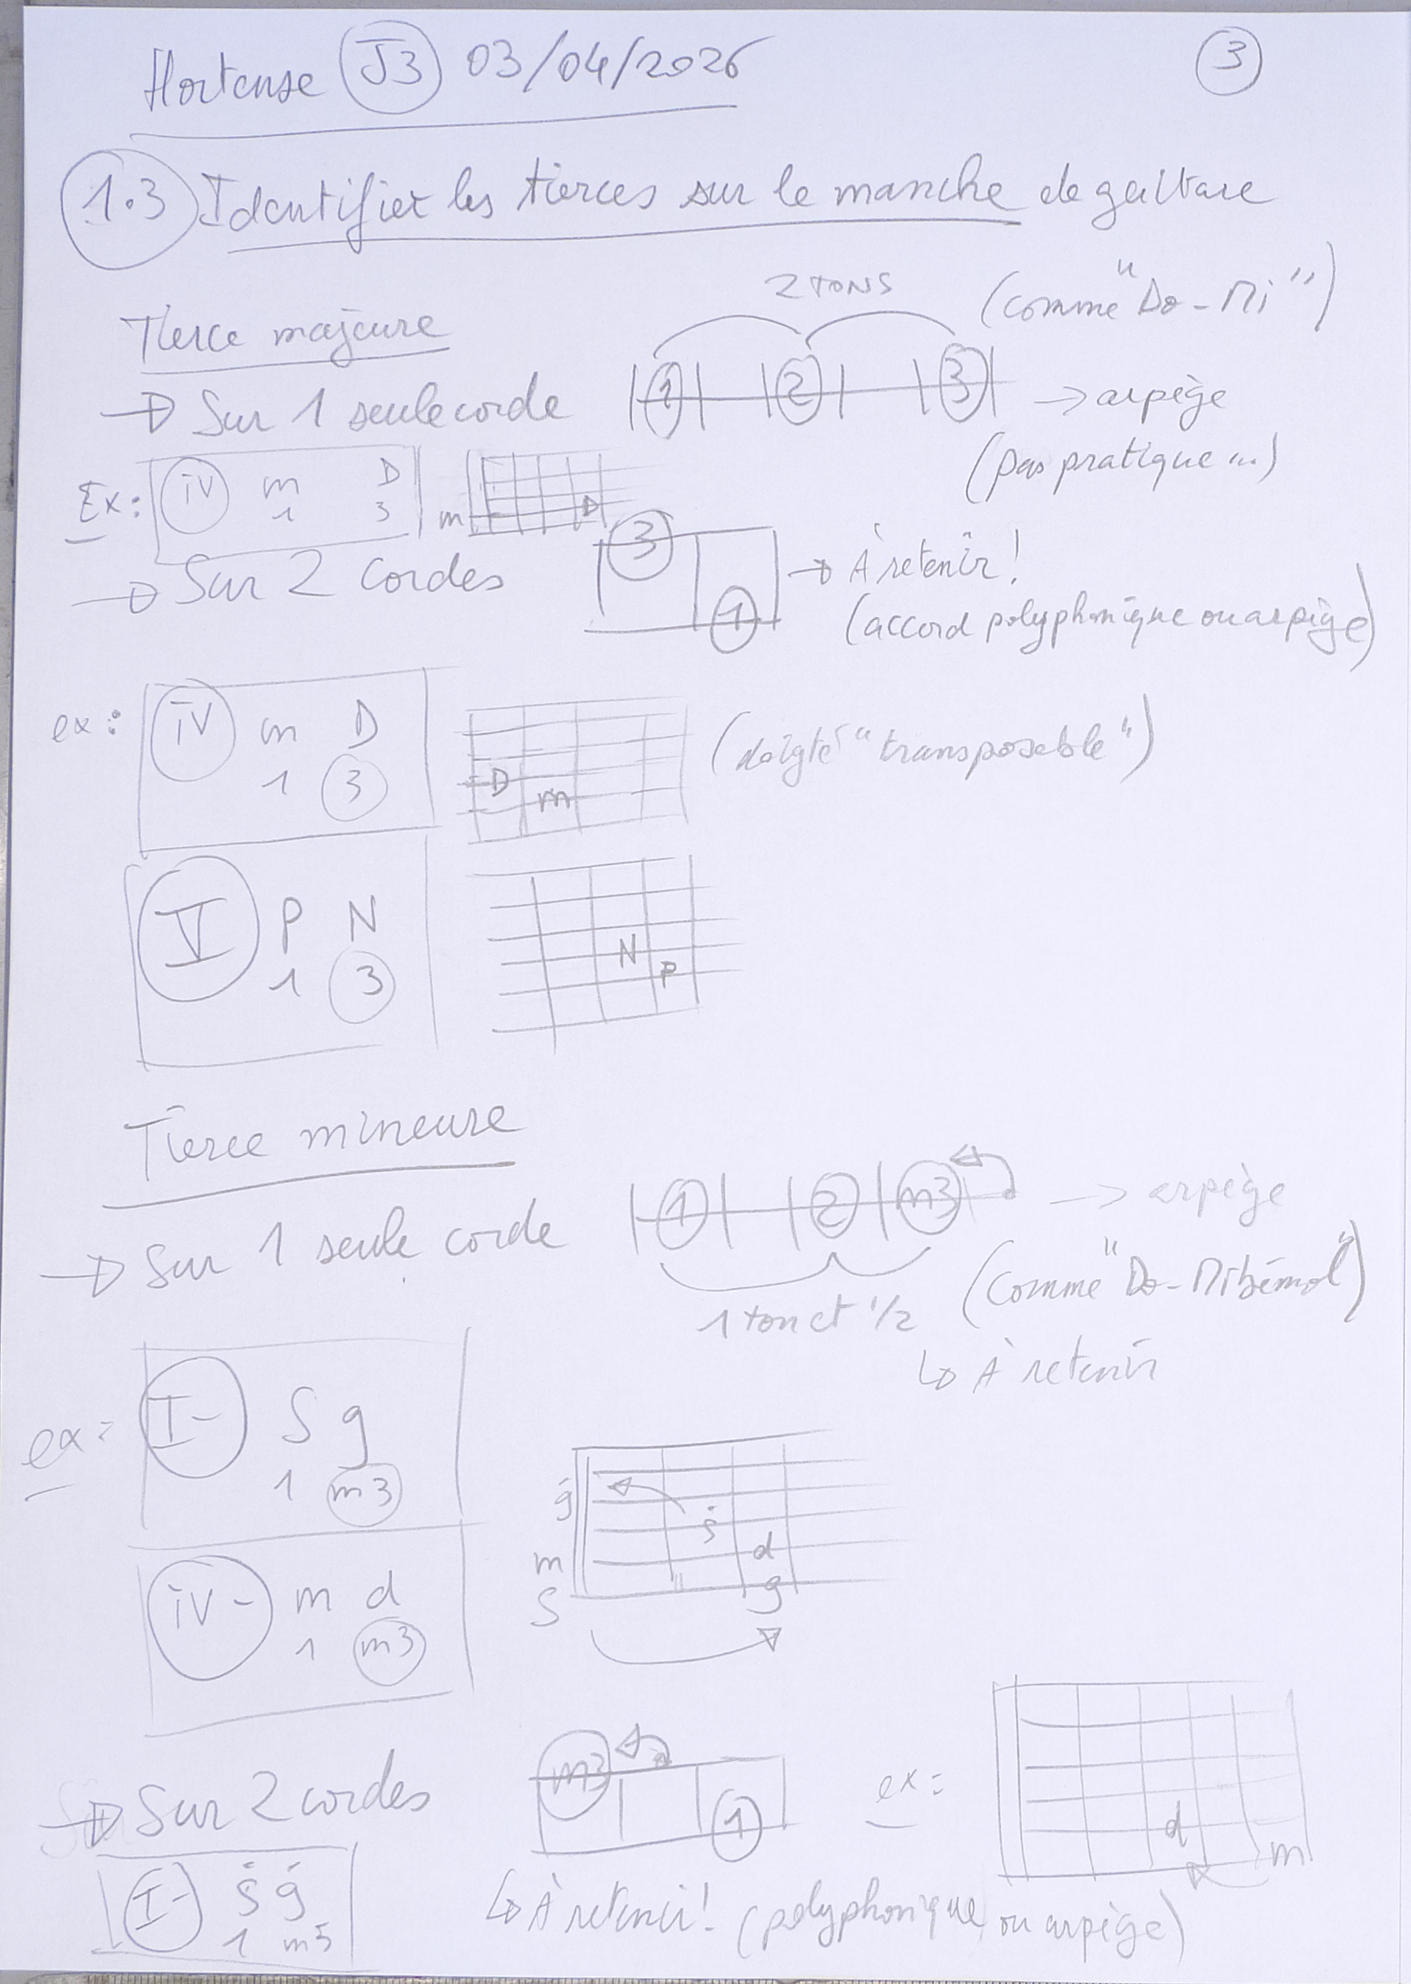 Hortense J3 03/04/2026
3
1.3 Identifier les tierces sur le manche de guitare
Tierce majeure
2 TONS
(comme "Do-Mi")
→ Sur 1 seule corde
1 2 3
→ arpège
(pas pratique...)
Ex: iV m D
1 3
m D
→ Sur 2 cordes
3
1
→ À retenir!
(accord polyphonique ou arpège)
ex: iV m D
1 3
D m
(doigté "transposable")
V P N
1 3
N P
Tierce mineure
→ Sur 1 seule corde
1 2 m3
→ arpège
1 ton et 1/2
(comme "Do-Mi bémol")
↳ À retenir
ex: I- S g
1 m3
ġ
ṡ
m d
S g
iV- m d
1 m3
→ Sur 2 cordes
m3
1
ex:
d
m
I- ṡ ġ
1 m3
↳ À retenir! (polyphonique ou arpège)